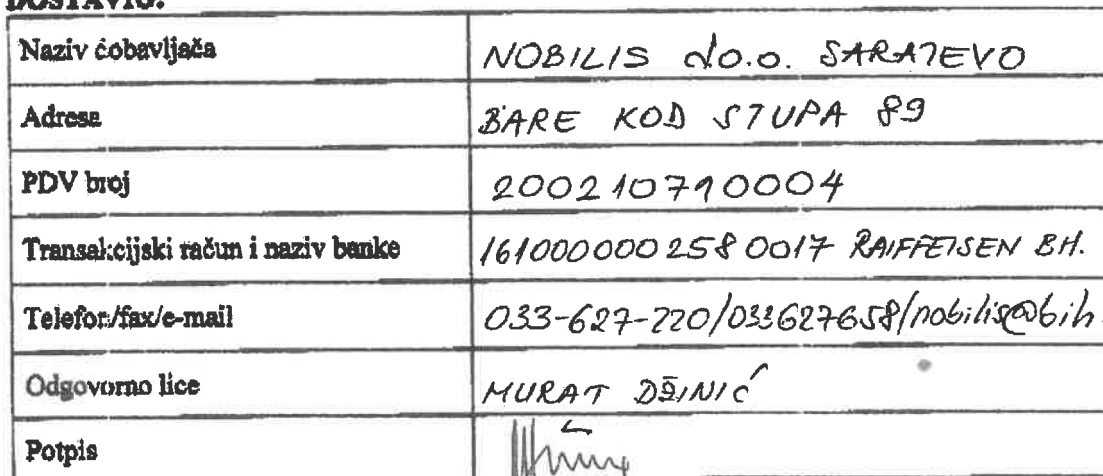 DOSTAVIO:
Naziv dobavljača NOBILIS do.o. SARAJEVO
Adresa BARE KOD STUPA 89
PDV broj 200210710004
Transakcijski račun i naziv banke 1610000002580017 RAIFFEISEN BH.
Telefon/fax/e-mail 033-627-220/033627658/nobilis@bih.
Odgovorno lice MURAT DŽINIĆ
Potpis